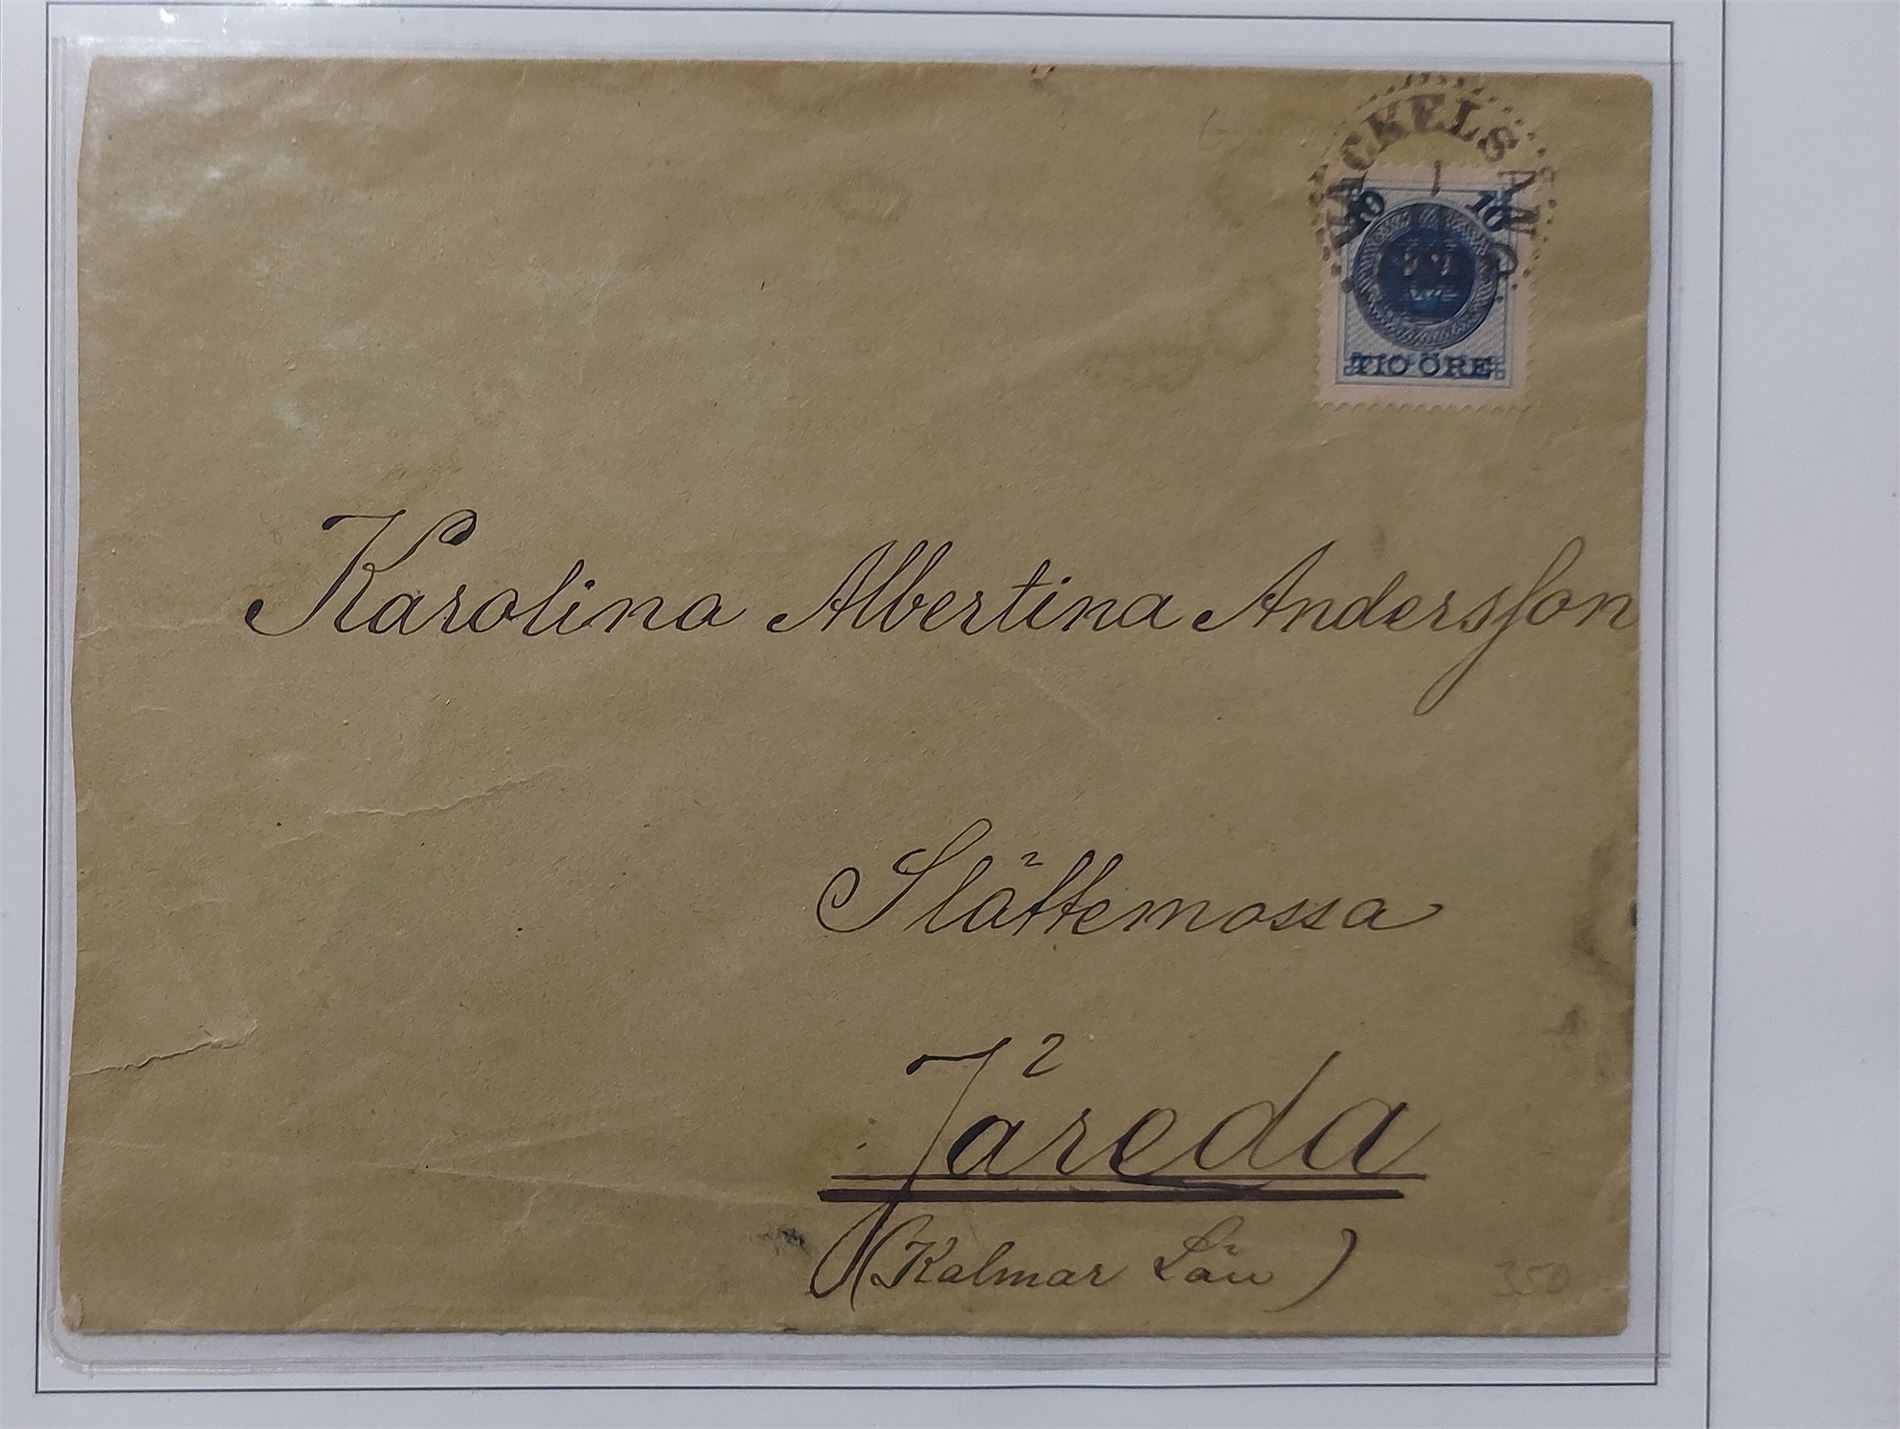 HACKELSÄNG
1
10 10
TIO ÖRE
Karolina Albertina Andersson
Slättemossa
Järeda
(Kalmar Län)
350